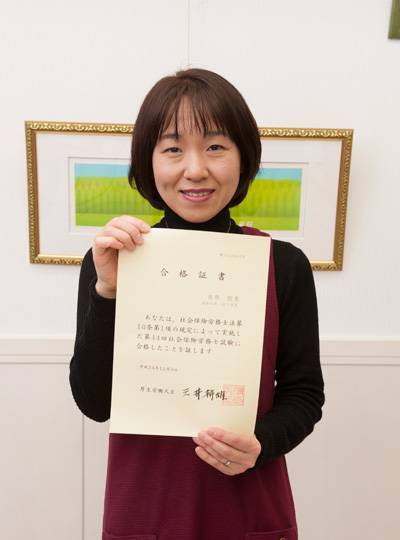 合格証書
あなたは、社会保険労務士法第
10条第1項の規定によって実施し
た第44回社会保険労務士試験に
合格したことを証します
平成24年12月
厚生労働大臣 三井辨雄